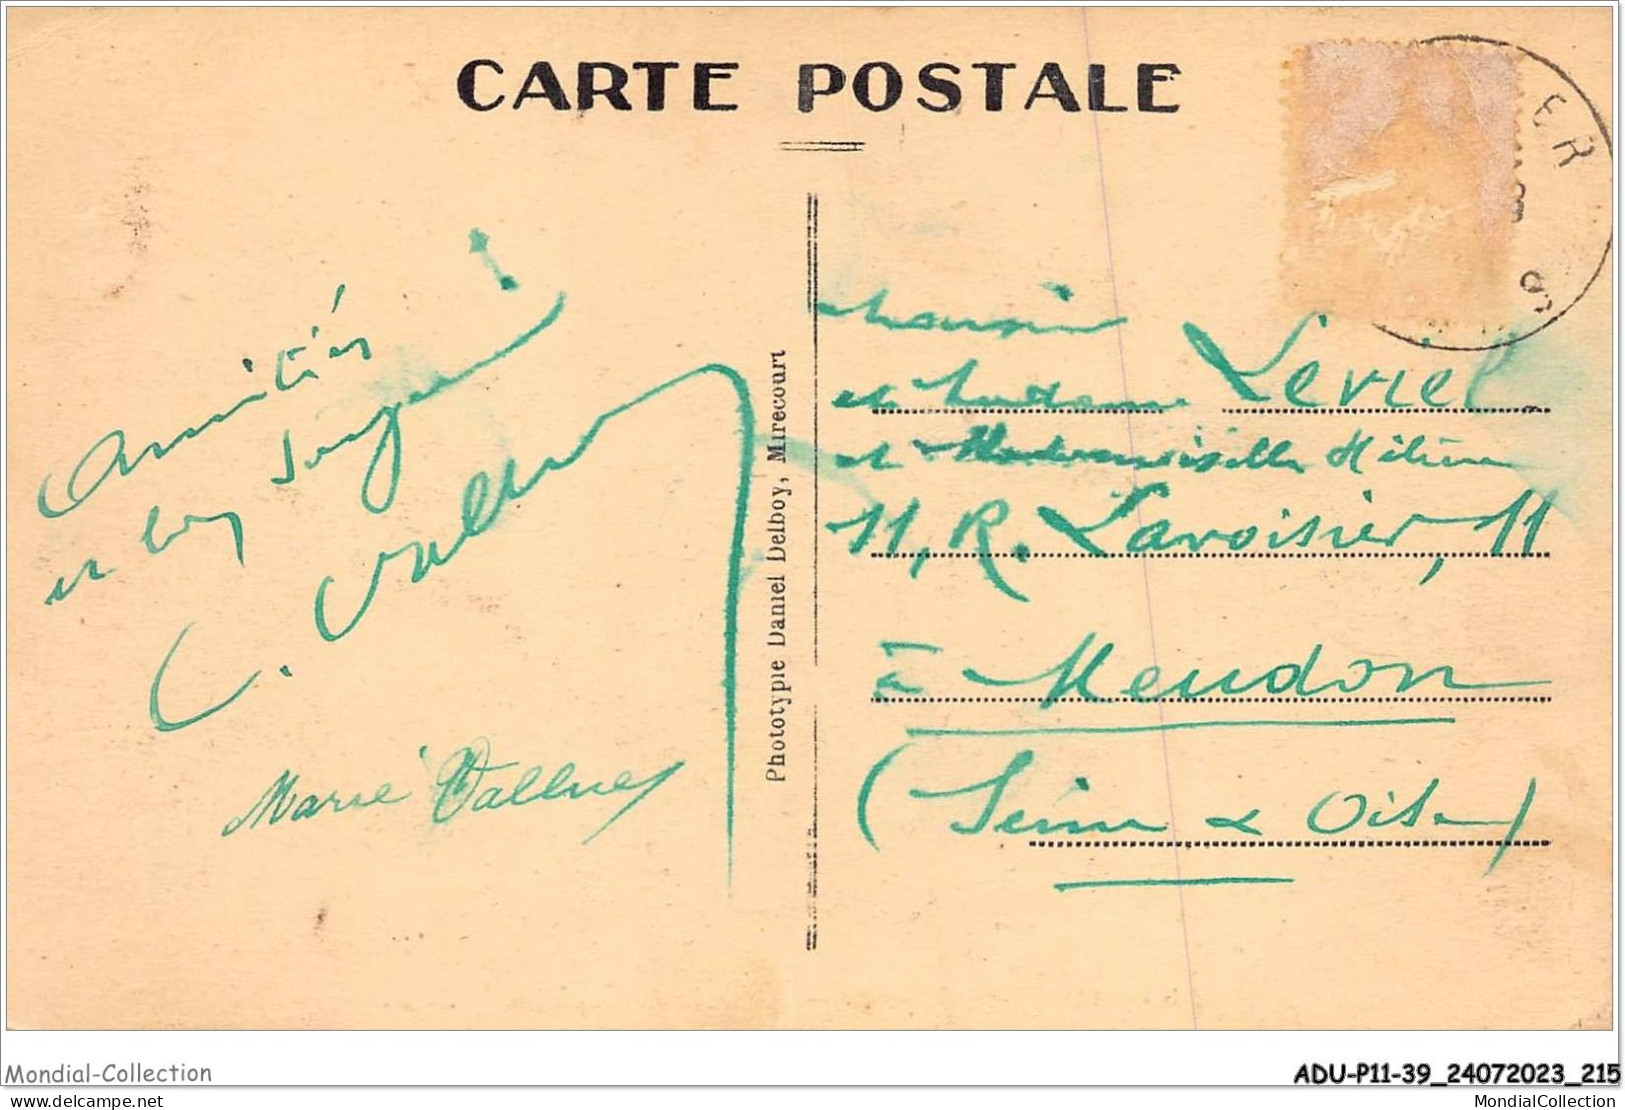 CARTE POSTALE
ER
Amitiés
et bons
C. Vallner
Marie Vallner
Phototypie Daniel Delboy, Mirecourt
Monsieur
et Madame Leviel
et Mademoiselle Hélène
11, R. Lavoisier, 11
à Meudon
(Seine & Oise)
Mondial-Collection
ADU-P11-39_24072023_215
delcampe.net
MondialCollection